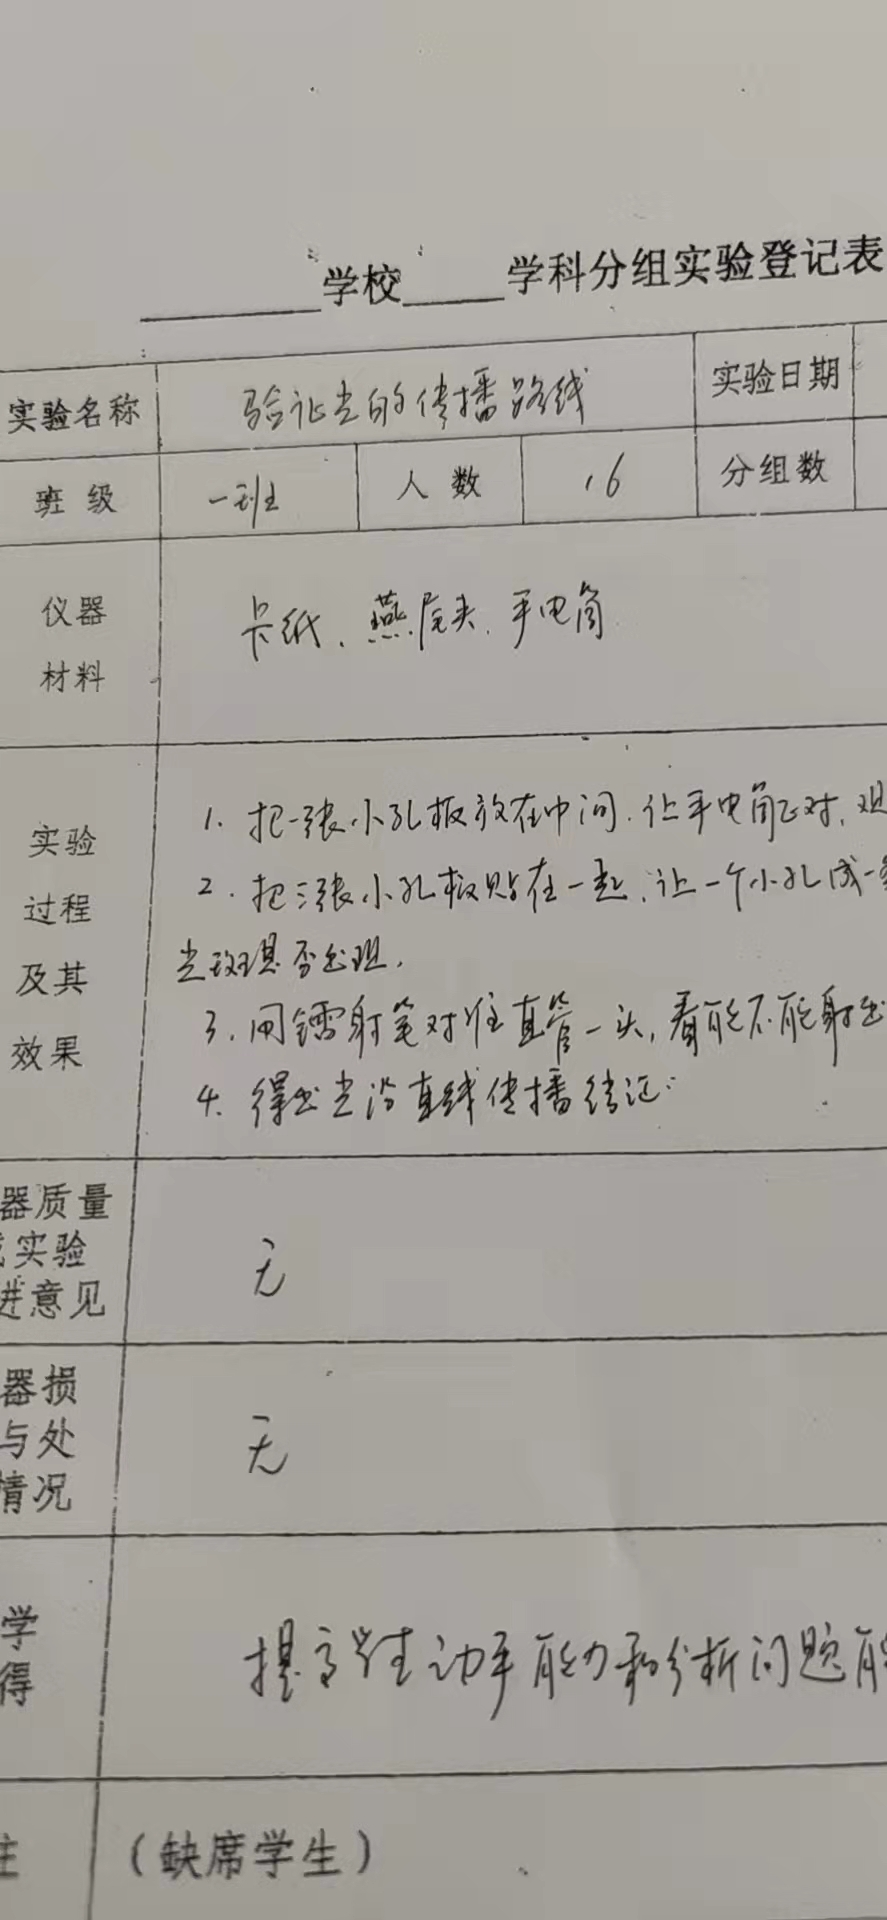 学校 学科分组实验登记表
实验名称 验证光的传播路线 实验日期
班级 一班 人数 16 分组数
仪器
材料
卡纸、燕尾夹、手电筒
实验
过程
及其
效果
1. 把一张小孔板放在中间,让手电筒正对,观
2. 把三张小孔板贴在一起,让一个小孔成一条
光斑是否出现.
3. 用镭射笔对准直管一头,看能不能射出
4. 得出光沿直线传播结论.
器质量
实验
进意见
无
器损
与处
情况
无
学
得
提高学生动手能力和分析问题能
注 (缺席学生)